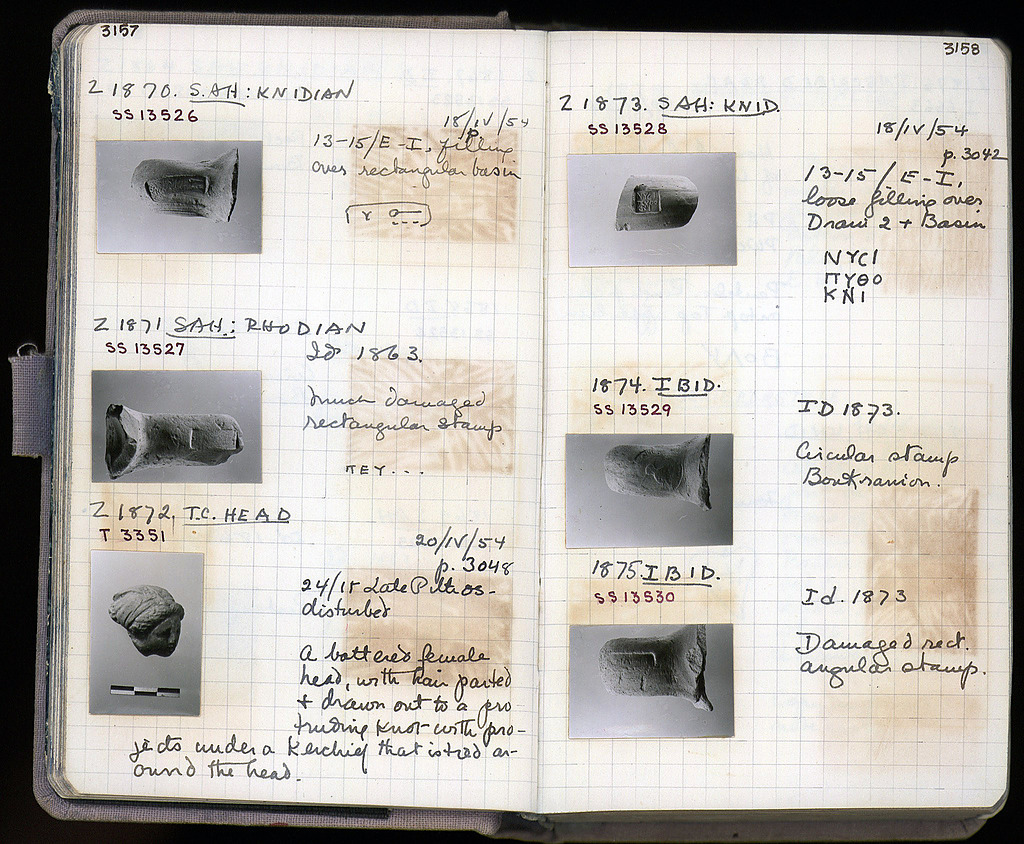 3157
Z 1870. S.AH: KNIDIAN
SS 13526
18/IV/54
p.
13-15/E-I, filling
over rectangular basin
Z 1871 SAH: RHODIAN
SS 13527
Id 1863.
much damaged
rectangular stamp
ΠΕΥ...
Z 1872. T.C. HEAD
T 3351
20/IV/54
p. 3048
24/ Late Pithos-
disturbed
A battered female
head, with hair parted
+ drawn out to a pro
truding knot with pro-
jects under a Kerchief that is tied ar-
ound the head.
3158
Z 1873. SAH: KNID.
SS 13528
18/IV/54
p. 3042
13-15/E-I,
loose filling over
Drain 2 + Basin
ΝΥCΙ
ΠΥΘΟ
ΚΝΙ
1874. IBID.
SS 13529
ID 1873.
Circular stamp
Boukranion.
1875. IBID.
SS 13530
Id. 1873
Damaged rect.
angular stamp.